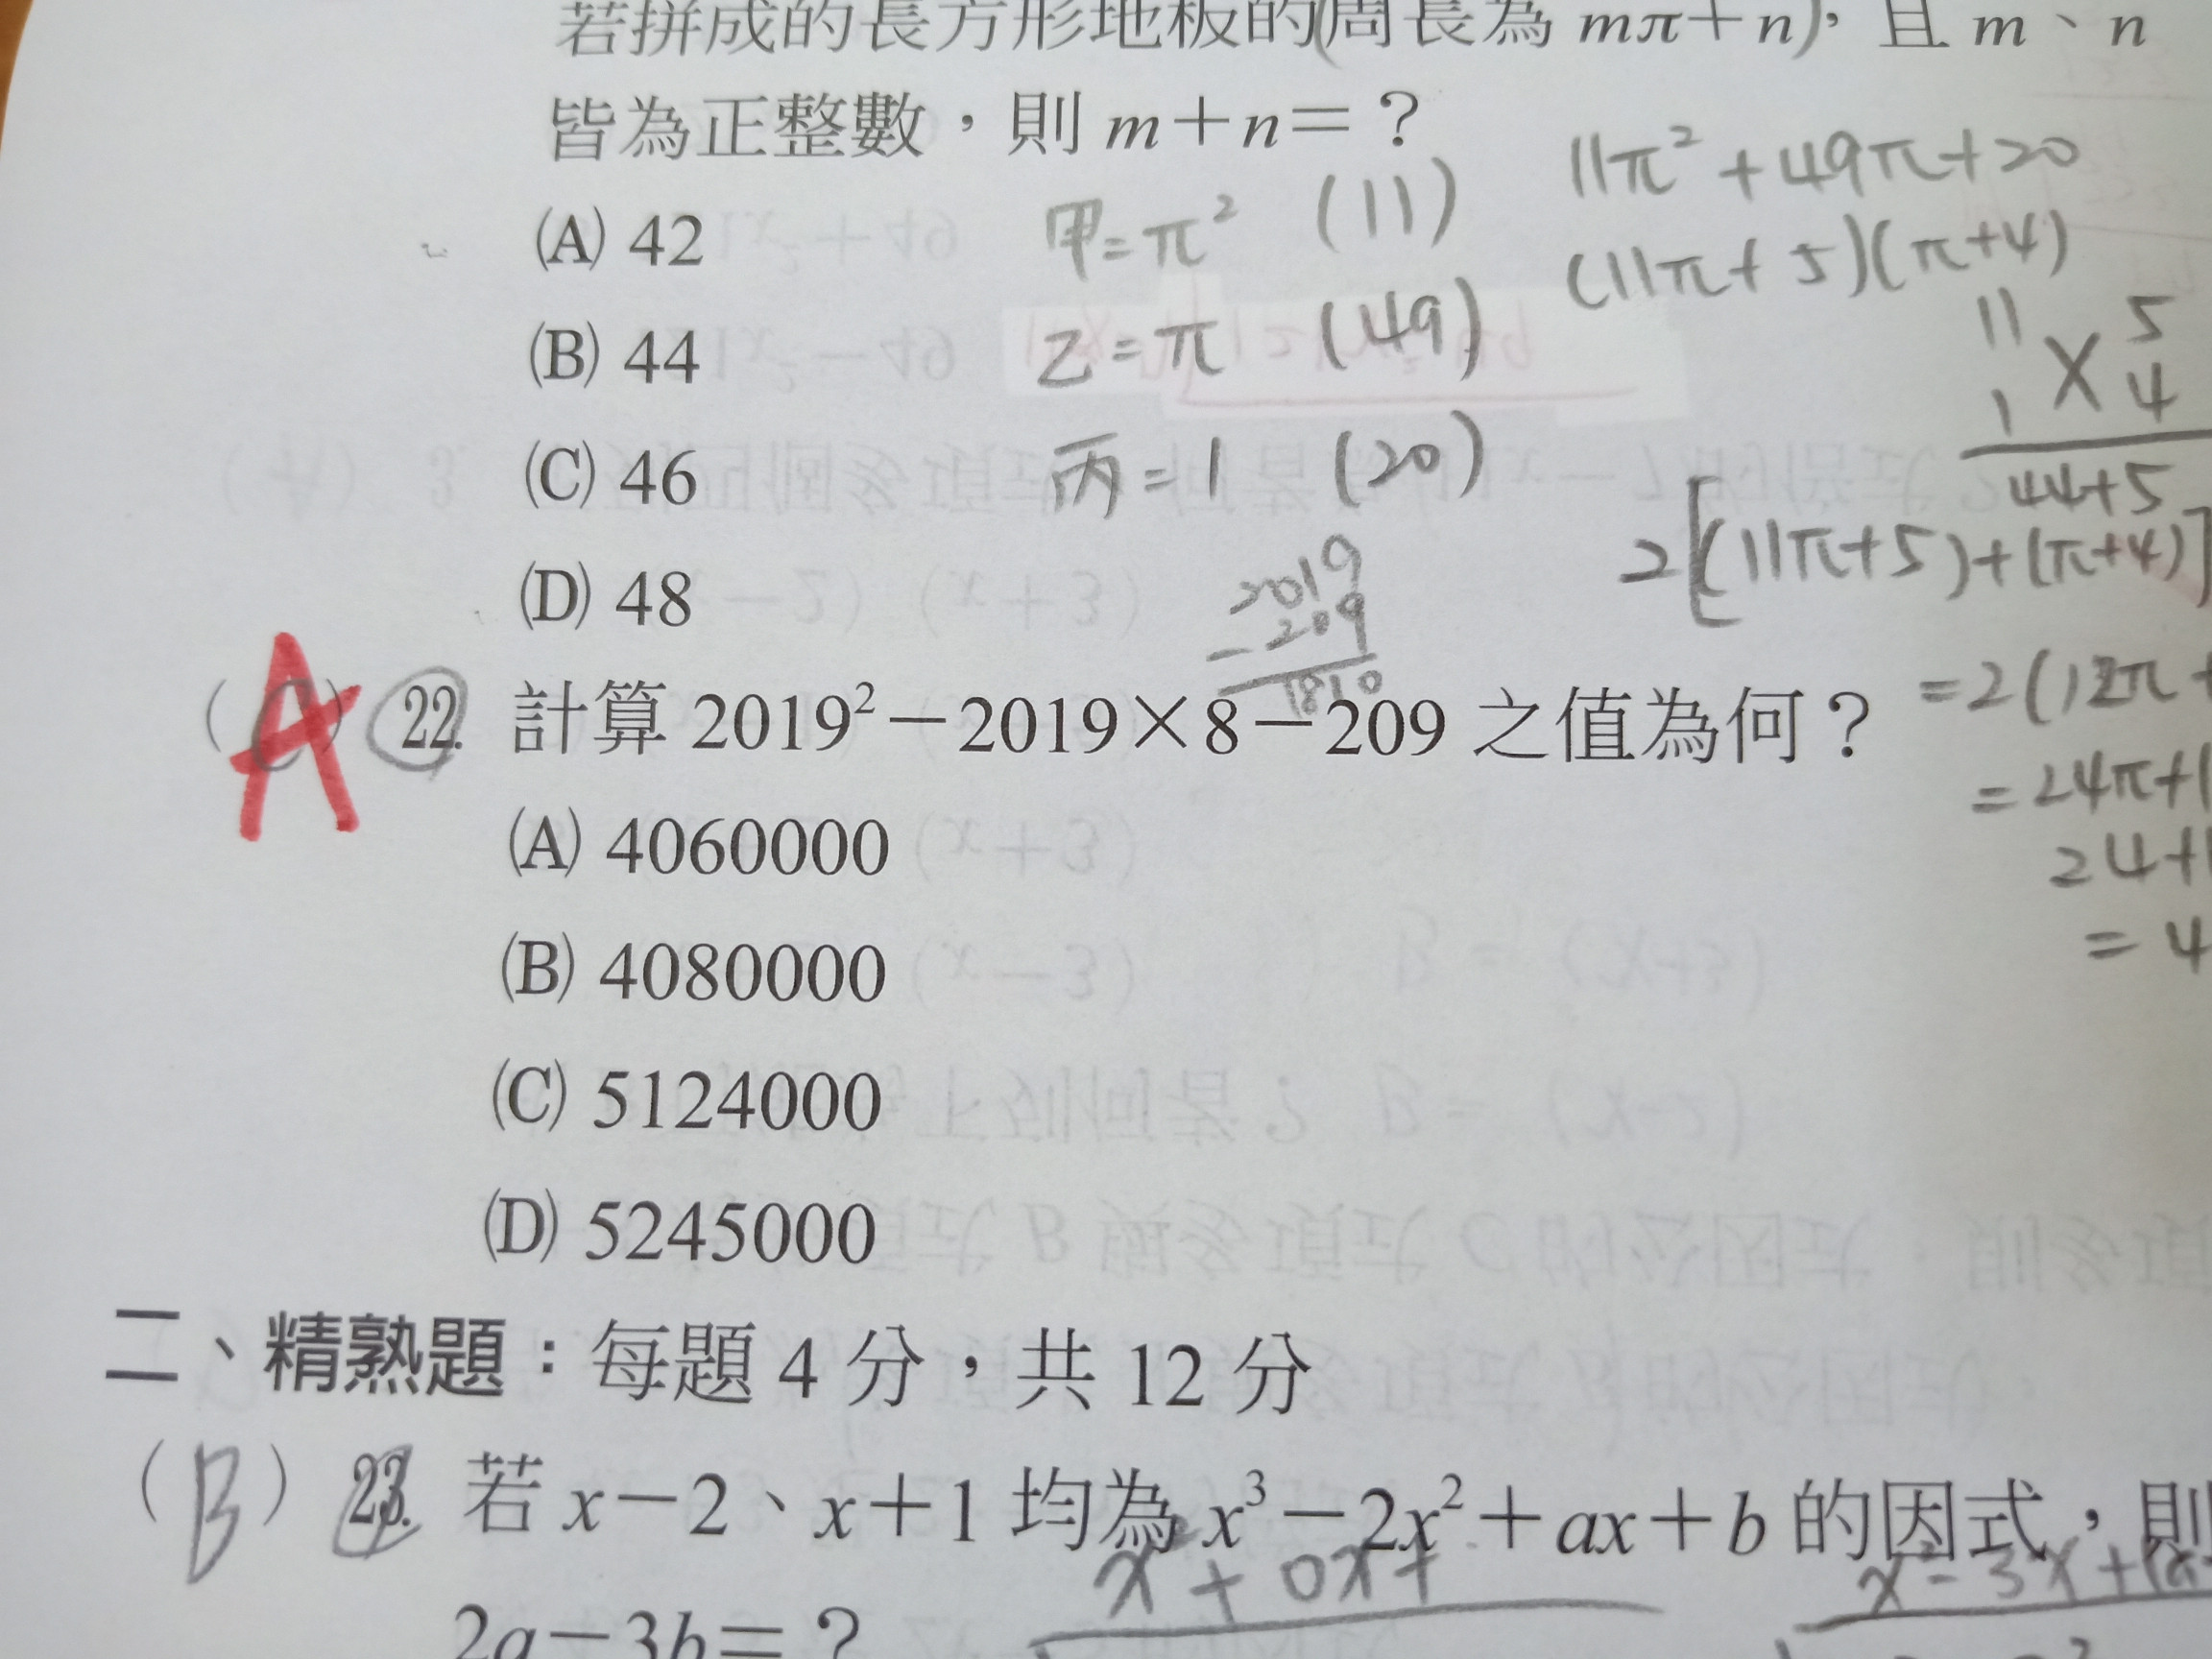 若拼成的長方形地板的(周長為 mπ+n),且 m、n
皆為正整數,則 m+n=?
(A) 42
(B) 44
(C) 46
(D) 48
甲=π² (11)
乙=π (49)
丙=1 (20)
11π²+49π+20
(11π+5)(π+4)
11 5
1 × 4
44+5
2[(11π+5)+(π+4)]
=2(12π+
=24π+1
24+1
=4
2019
-209
1810
(C) A 22. 計算 2019²-2019×8-209 之值為何?
(A) 4060000
(B) 4080000
(C) 5124000
(D) 5245000
二、精熟題:每題 4 分,共 12 分
(B) 23. 若 x-2、x+1 均為 x³-2x²+ax+b 的因式,則
2a-3b=?
x²+0x+
x²-3x+